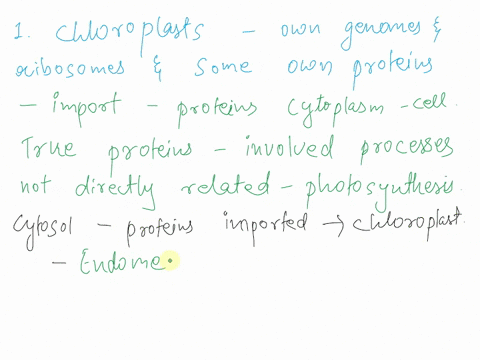 1. Chloroplasts - own genomes &
ribosomes & Some own proteins
- import - proteins cytoplasm - cell.
True proteins - involved processes
not directly related - photosynthesis.
Cytosol - proteins imported → chloroplast.
- Endome